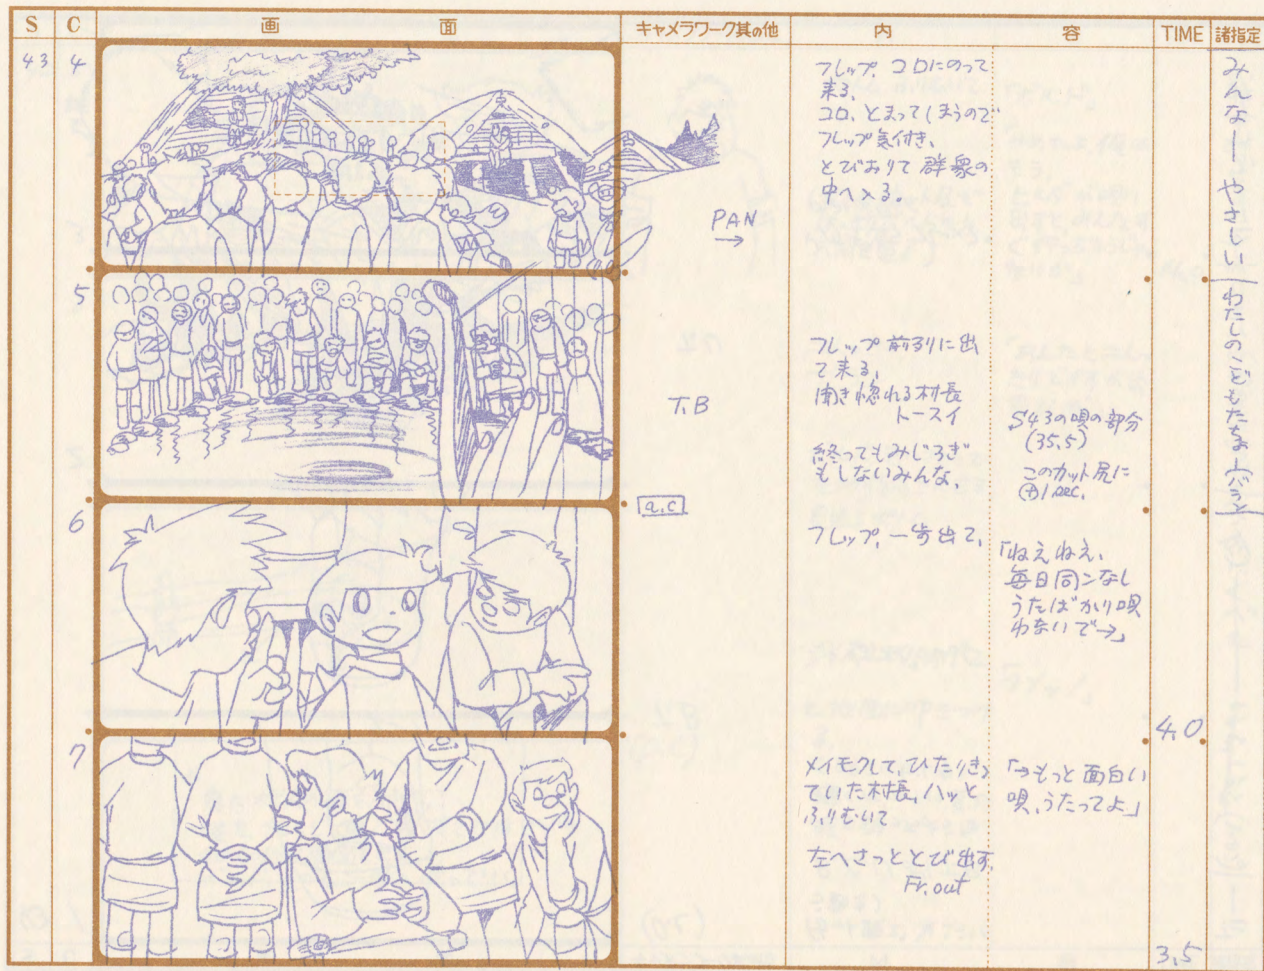 S C 画 面 キャメラワーク其の他 内 容 TIME 諸指定
43 4
フレップ、コロにのって
来る、
コロ、とまってしまうので
フレップ気付き、
とびおりて群衆の
中へ入る。
PAN
→
みんなー やさしい
わたしのこどもたち
5
T.B
フレップ前列に出
て来る、
聞き惚れる村長
トースイ
終ってもみじろぎ
もしないみんな、
S43の唄の部分
(35.5)
このカット尻に
⊕1sec.
6
a.c
フレップ、一歩出て、
「ねえねえ、
毎日同ンなし
うたばかり唄
わないで→」
4.0
7
メイモクして、ひたりきっ
ていた村長、ハッと
ふりむいて
左へさっととび出す、
Fr.out
「→もっと面白い
唄、うたってよ」
3.5